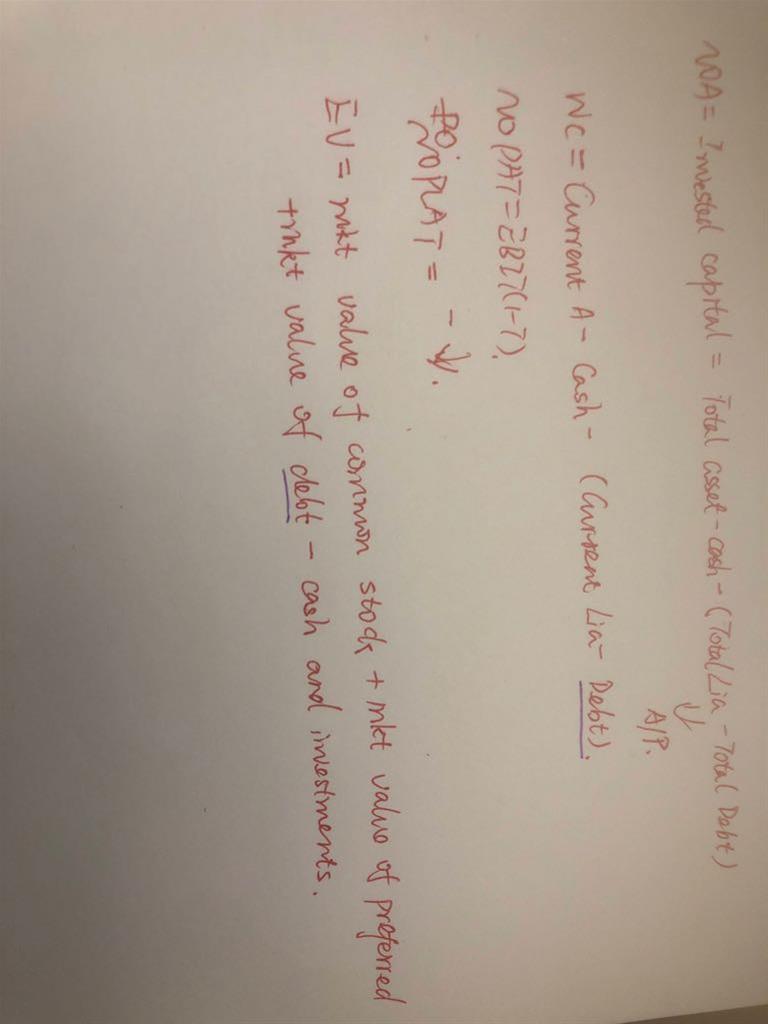 NOA = Invested capital = Total asset - cash - (Total Lia - Total Debt)
↓
A/P.
WC = Current A - Cash - (Current Lia - Debt).
NOPAT = EBIT(1-T).
NOPLAT = - ↓.
EV = mkt value of common stock + mkt value of preferred
+ mkt value of debt - cash and investments.